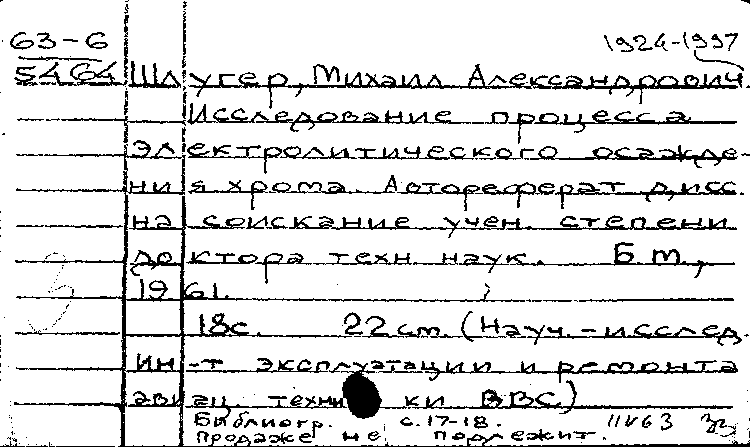 63-6
1924-1997
5464
Шлугер, Михаил Александрович
Исследование процесса
электролитического осажде-
ния хрома. Автореферат дисс.
на соискание учен. степени
доктора техн. наук. Б.м.,
1961.
18с. 22 см. (Науч.-исслед.
ин-т эксплуатации и ремонта
авиац. техники ВВС)
Библиогр. с.17-18. 11V63
Продаже не подлежит.